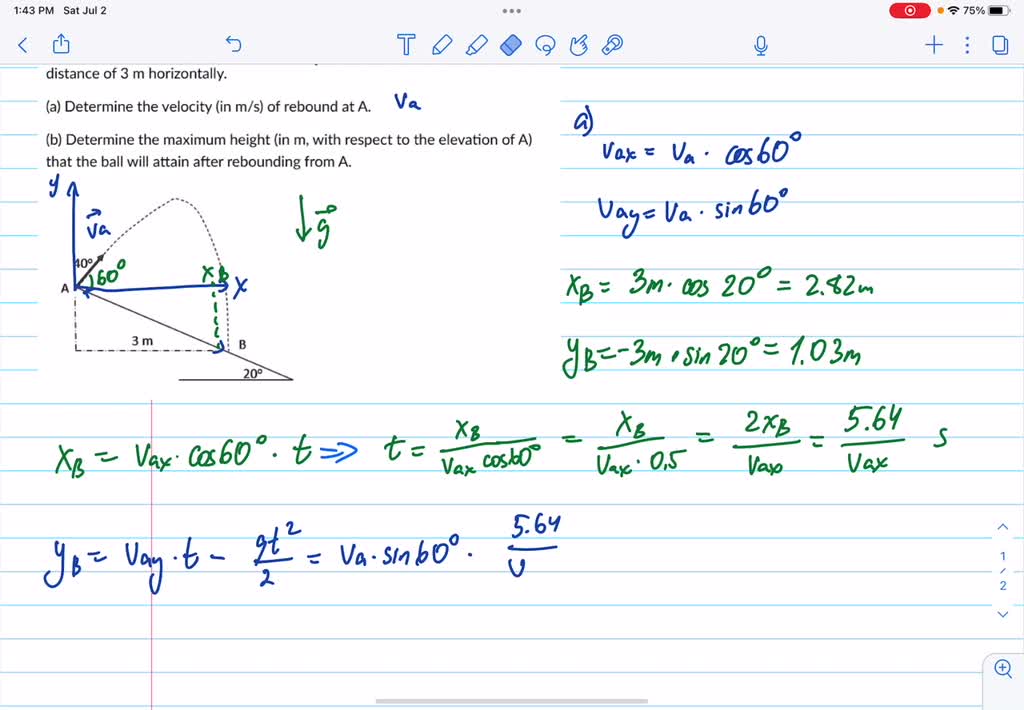 1:43 PM Sat Jul 2
75%
distance of 3 m horizontally.
(a) Determine the velocity (in m/s) of rebound at A. Va
(b) Determine the maximum height (in m, with respect to the elevation of A)
that the ball will attain after rebounding from A.
a)
Vax = Va · cos60°
Vay = Va · sin60°
XB = 3m · cos 20° = 2.82m
YB = -3m · sin 20° = 1.03m
y
Va
g
40°
60°
XB
X
A
3 m
B
20°
XB = Vax · cos60° · t ⇒ t = XB / Vax cos60° = XB / Vax · 0,5 = 2XB / Vax = 5.64 / Vax s
YB = Vay · t - gt² / 2 = Va · sin60° · 5.64 / V
1
/
2